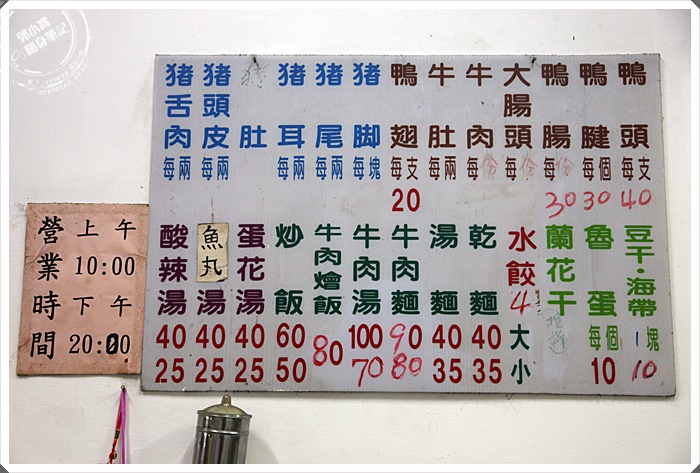 郭小寶
隨身筆記
營業時間
上午
10:00
下午
20:00
鴨頭 每支 40
鴨腱 每個 30
鴨腸 每份 30
大腸頭 每份
牛肉 每份
牛肚 每兩
鴨翅 每支 20
猪脚 每塊
猪尾 每兩
猪耳 每兩
猪肚
猪頭皮 每兩
猪舌肉 每兩
豆干・海帶 1塊 10
魯蛋 每個 10
蘭花干
水餃 4 大 小
乾麵 40 35
湯麵 40 35
牛肉麵 90 80
牛肉湯 100 70
牛肉燴飯 80
炒飯 60 50
蛋花湯 40 25
魚丸湯 40 25
酸辣湯 40 25